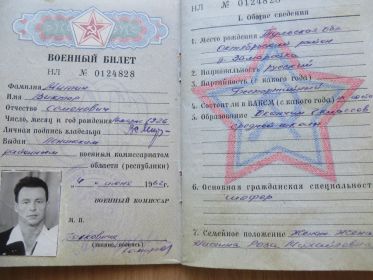 ВОЕННЫЙ БИЛЕТ
НЛ № 0124828
Фамилия
Имя Виктор
Отчество Семенович
Число, месяц и год рождения 1926
Личная подпись владельца
Выдан Ленинским
районным военным комиссариатом
области (республики)
4 июня 196
ВОЕННЫЙ КОМИССАР
М. П.
(звание, подпись)
НЛ № 0124828
I. Общие сведения
1. Место рождения Тульская обл
Октябрьский район
д.
2. Национальность Русский
3. Партийность (с какого года)
Беспартийный
4. Состоит ли в ВЛКСМ (с какого года)
5. Образование классов
средней школы
6. Основная гражданская специальность
шофер
7. Семейное положение Женат Жена
Роза Михайловна